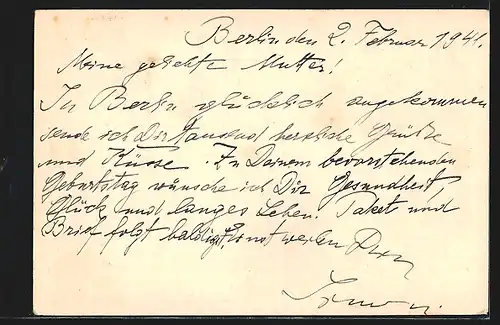 Berlin den 2. Februar 1941.
Meine geliebte Mutter!
In Berlin glücklich angekommen
sende ich Dir tausend herzliche Grüße
und Küsse. Zu Deinem bevorstehenden
Geburtstag wünsche ich Dir Gesundheit,
Glück und langes Leben. Paket und
Brief folgt baldigst